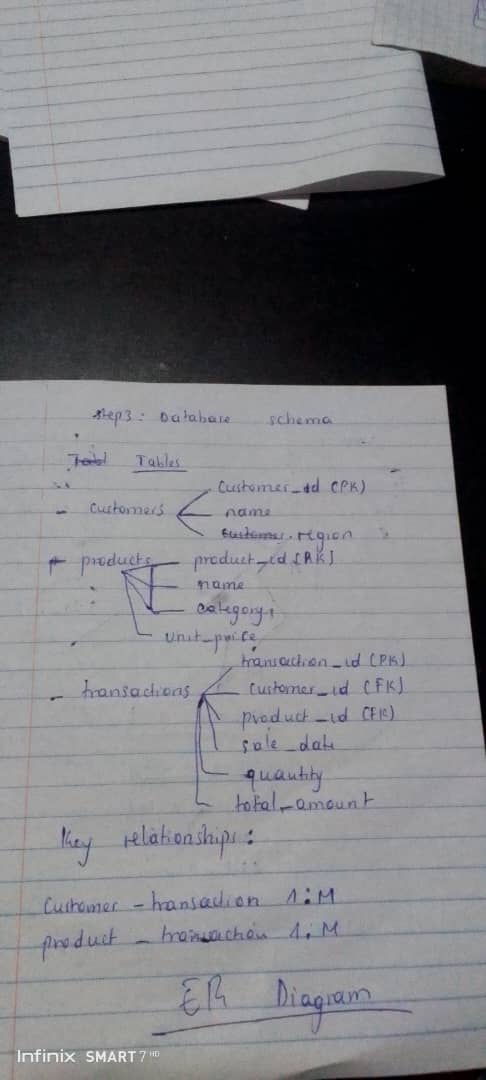 step3: Database schema
Tables
- customers
customer_id (PK)
name
region
products
product_id [PK]
name
category
unit_price
- transactions
transaction_id (PK)
customer_id (FK)
product_id (FK)
sale_date
quantity
total_amount
Key relationships:
Customer - transaction 1:M
product - transaction 1:M
ER Diagram
Infinix SMART 7 HD